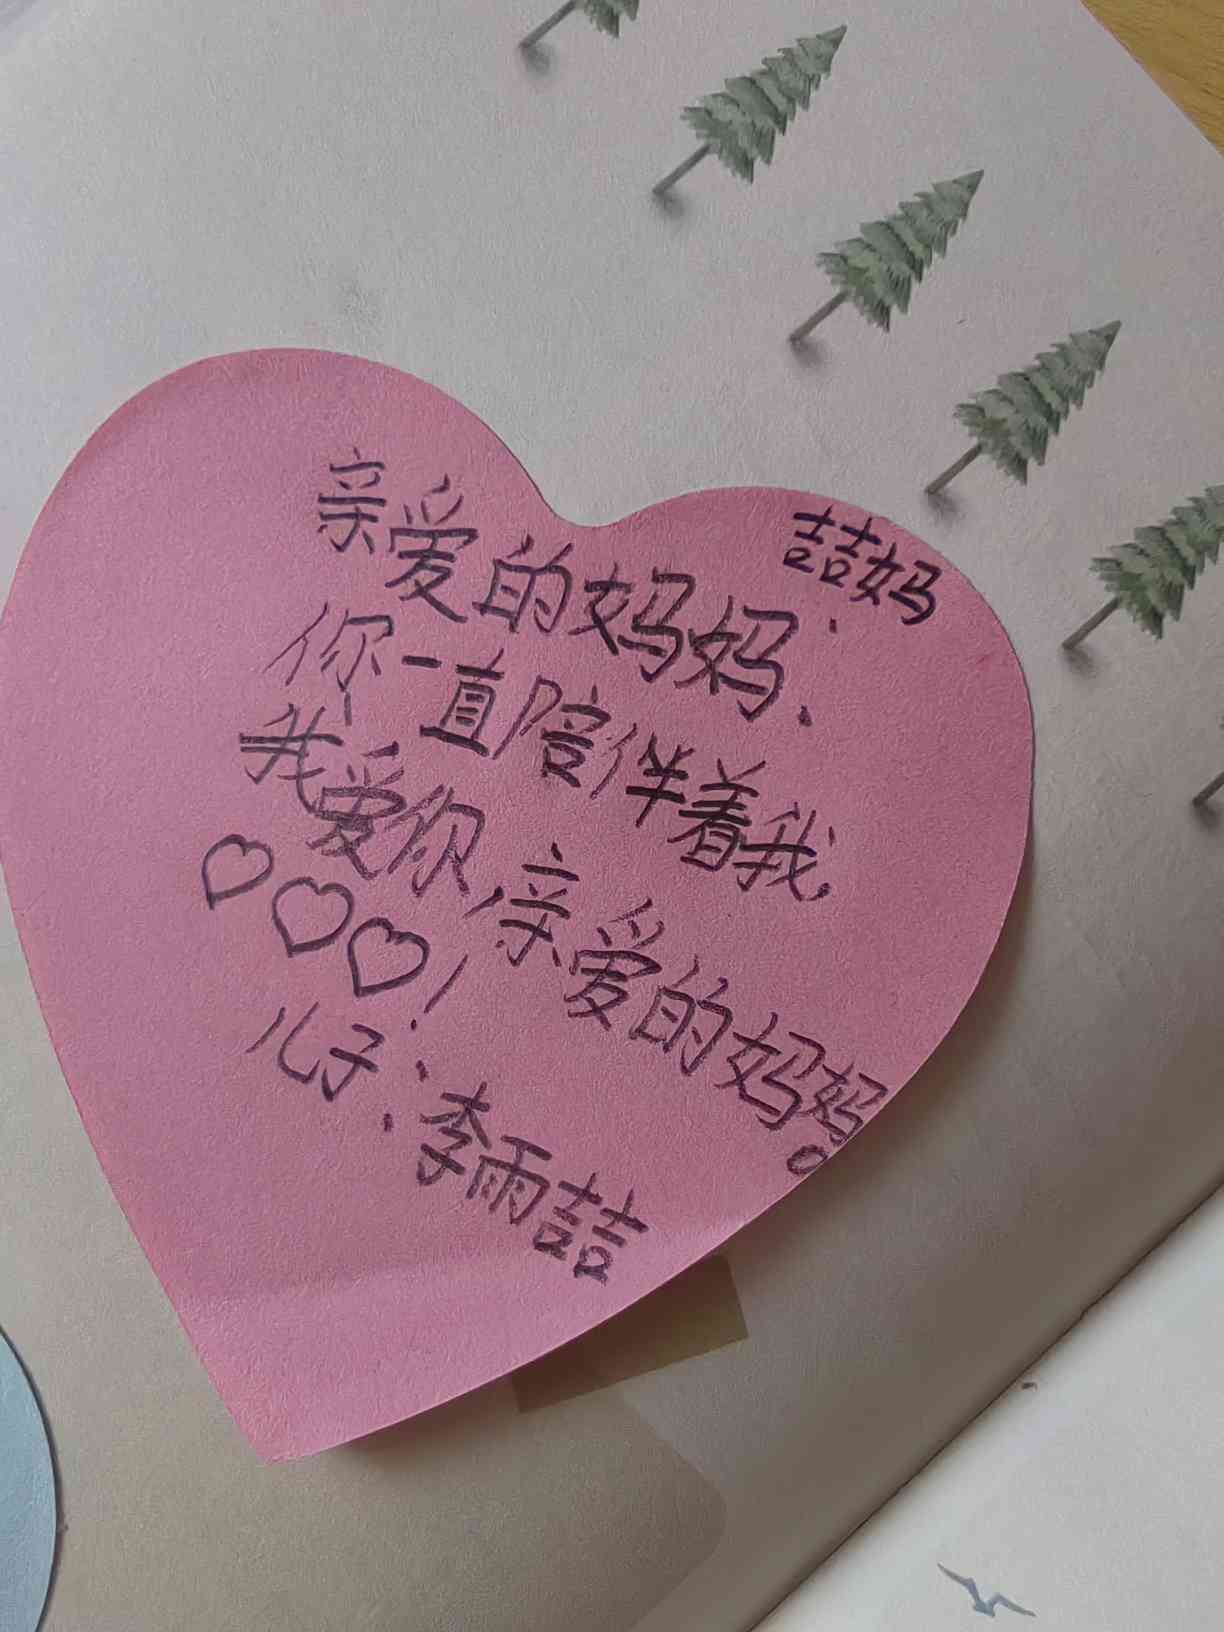 喆妈
亲爱的妈妈:
你一直陪伴着我,
我爱你,亲爱的妈妈。
♡♡♡!
儿子:李雨喆